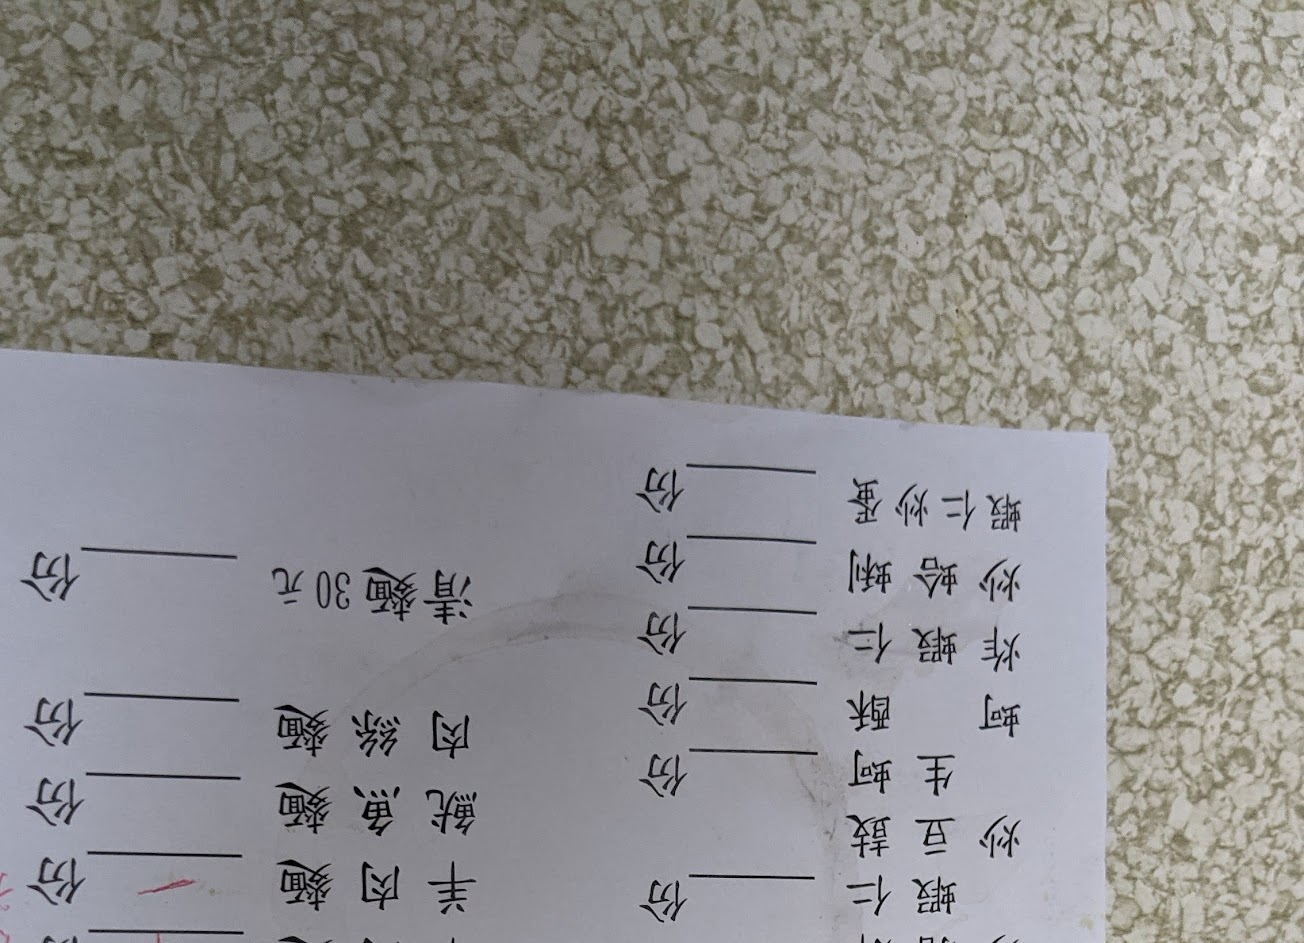 蝦仁 ____份
炒豆鼓
生蚵 ____份
蚵酥 ____份
炸蝦仁 ____份
炒蛤蜊 ____份
蝦仁炒蛋 ____份
羊肉麵 一 份
魷魚麵 ____份
肉絲麵 ____份
清麵30元 ____份